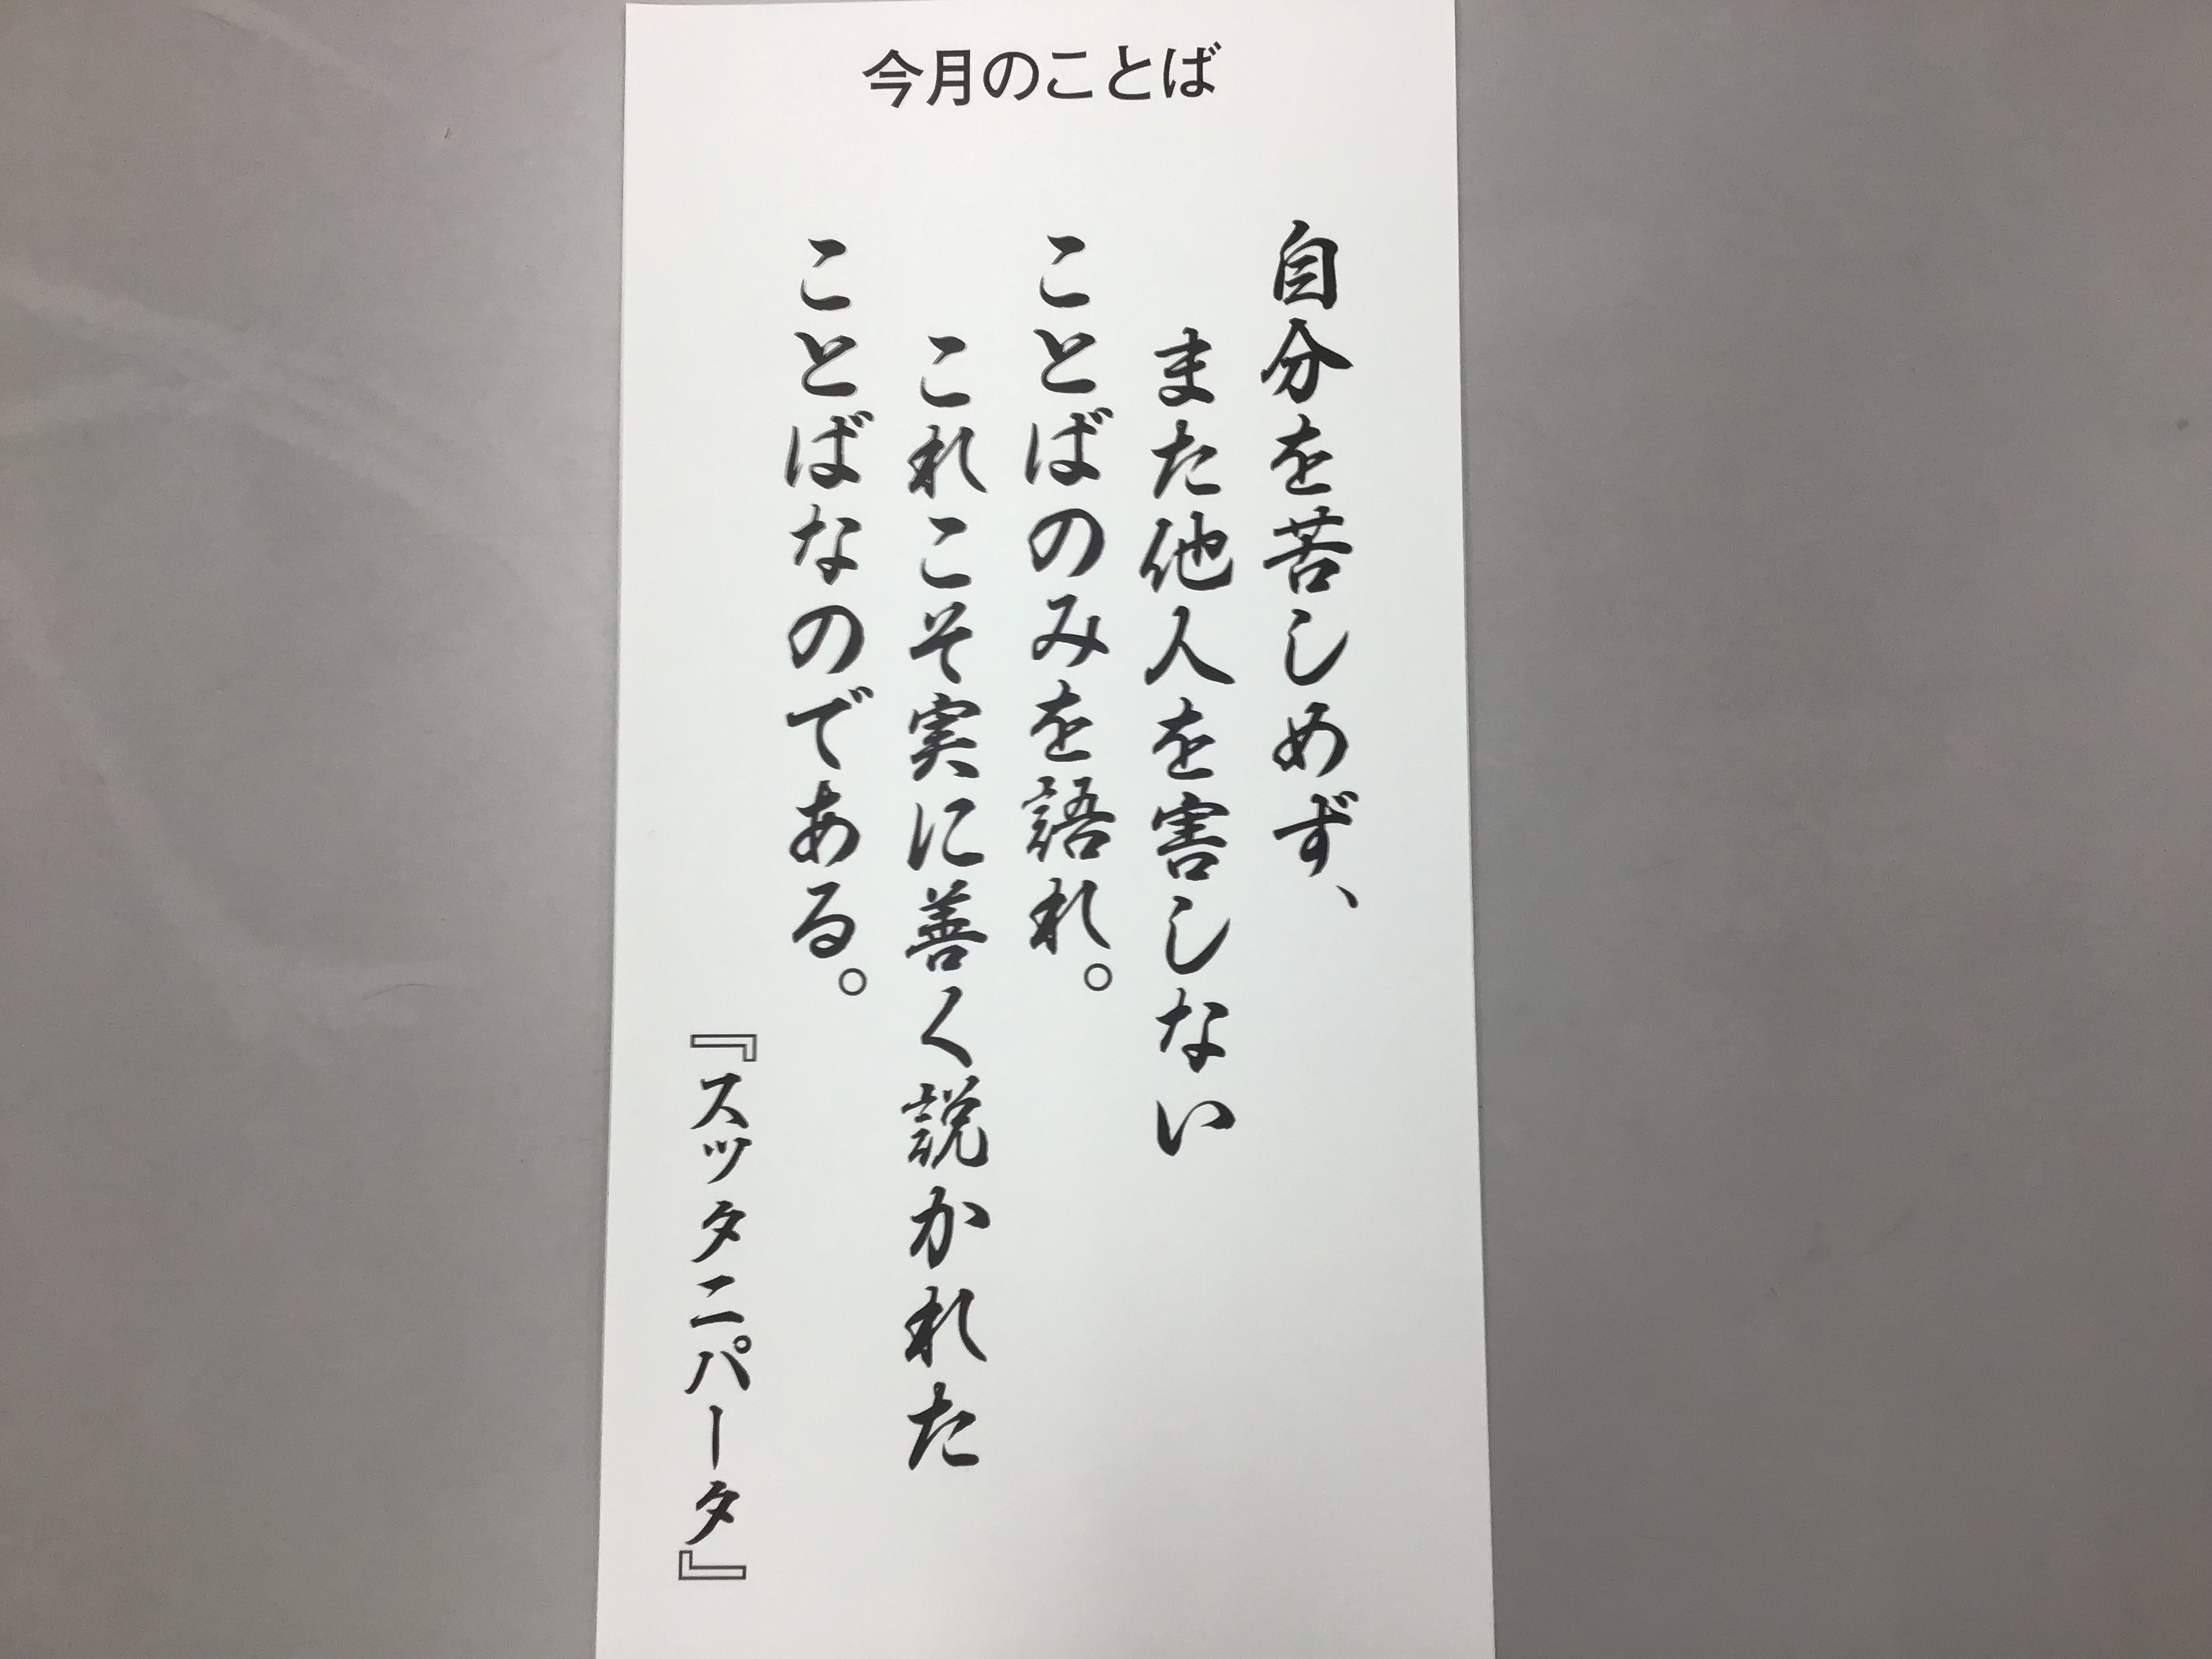 今月のことば
自分を苦しめず、
また他人を害しない
ことばのみを語れ。
これこそ実に善く説かれた
ことばなのである。
『スッタニパータ』